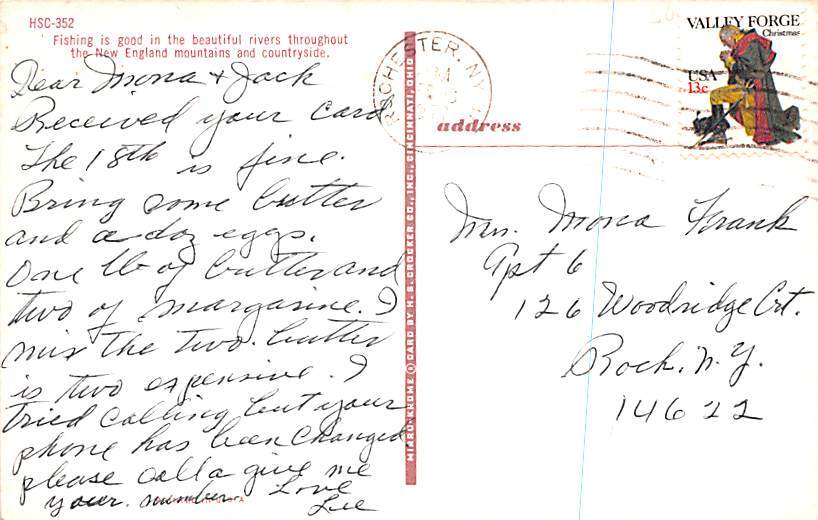 HSC-352
Fishing is good in the beautiful rivers throughout
the New England mountains and countryside.
Dear Mona + Jack
Received your card
The 18th is fine.
Bring some butter
and a doz eggs.
One lb of butter and
two of margarine. I
mix the two. butter
is two expensive. I
tried calling but your
phone has been changed
please call a give me
your number Love
Lee
MIRRO-KROME CARD BY H. S. CROCKER CO., INC., CINCINNATI, OHIO
ROCHESTER, NY
PM
address
VALLEY FORGE
Christmas
USA
13c
Mrs. Mona Frank
Apt 6
126 Woodridge Crt.
Roch. N.Y.
14622